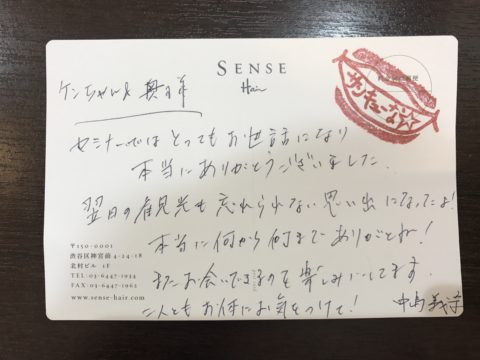 SENSE
Hair
ケンちゃん& 奥様
セミナーではとってもお世話になり
本当にありがとうございました.
翌日の観光も忘れられない思い出になってよ!
本当に何から何までありがとね!
またお会いできるのを楽しみにしてます.
二人ともお体にお気をつけて!
〒150-0001
渋谷区神宮前4-24-18
北村ビル 1F
TEL:03-6447-1954
FAX:03-6447-1962
www.sense-hair.com
サンキュー